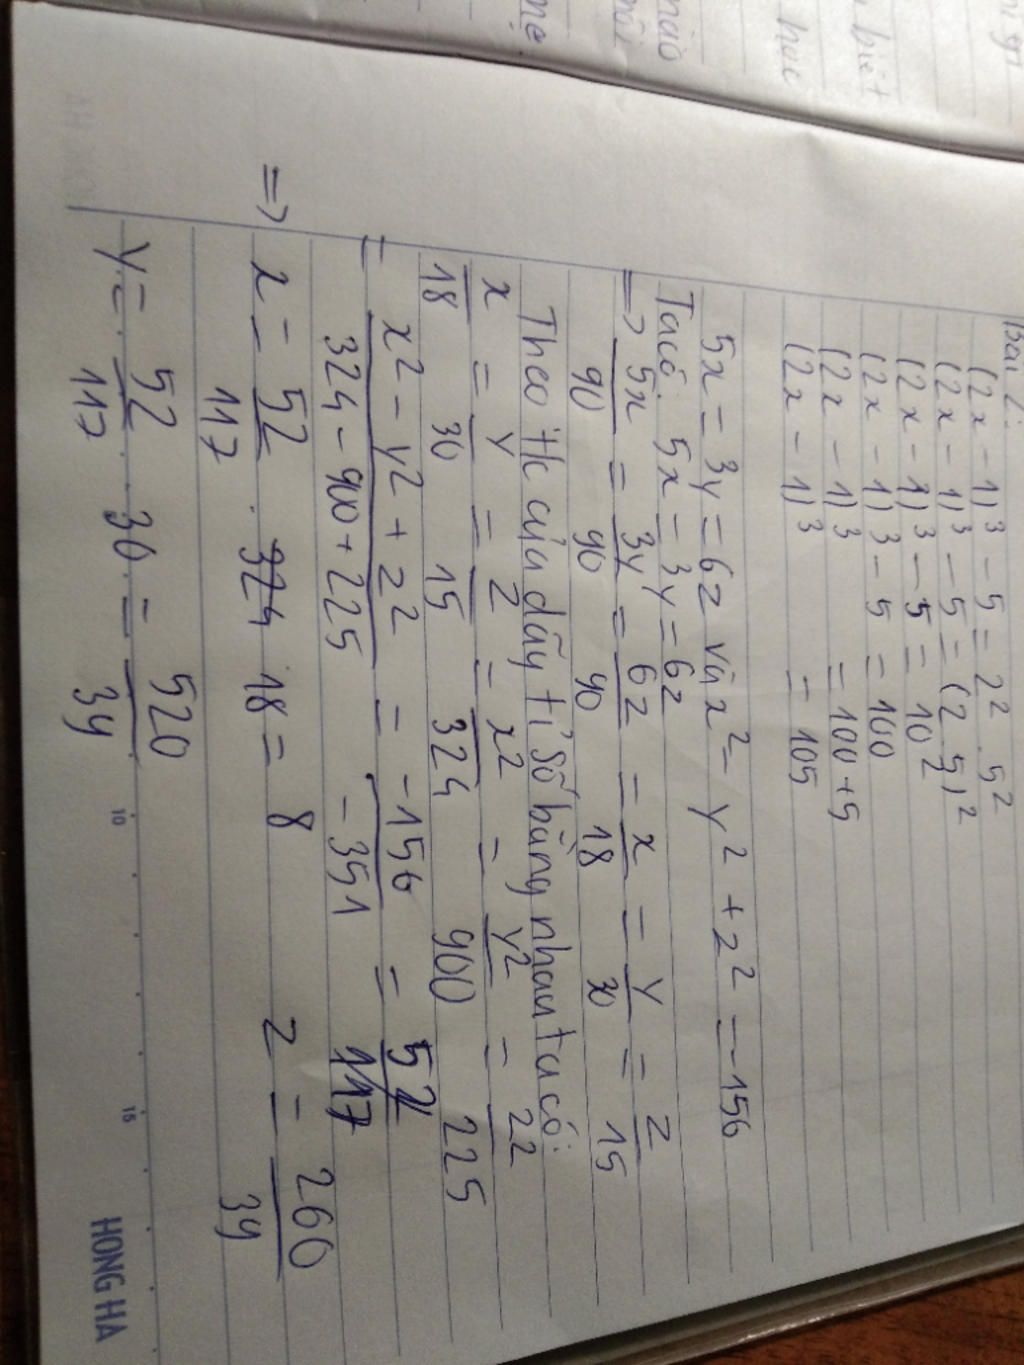 Bài 2:
(2x - 1)³ - 5 = 2² . 5²
(2x - 1)³ - 5 = (2.5)²
(2x - 1)³ - 5 = 10²
(2x - 1)³ - 5 = 100
(2x - 1)³ = 100 + 5
(2x - 1)³ = 105
5x = 3y = 6z và x² - y² + z² = -156
Ta có: 5x = 3y = 6z
=> 5x/90 = 3y/90 = 6z/90 = x/18 = y/30 = z/15
Theo t/c của dãy tỉ số bằng nhau ta có:
x/18 = y/30 = z/15 = x²/324 = y²/900 = z²/225
= x² - y² + z² / 324 - 900 + 225 = -156/-351 = 52/117
=> x = 52/117 . 324 18 = 8 z = 260/39
y = 52/117 . 30 = 520/39
10
15
HONG HA